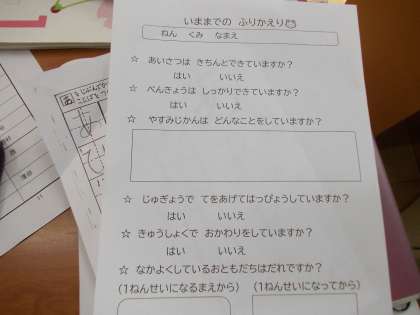 いままでの ふりかえり
ねん くみ なまえ
☆ あいさつは きちんとできていますか?
はい いいえ
☆ べんきょうは しっかりできていますか?
はい いいえ
☆ やすみじかんは どんなことをしていますか?
☆ じゅぎょうで てをあげてはっぴょうしていますか?
はい いいえ
☆ きゅうしょくで おかわりをしていますか?
はい いいえ
☆ なかよくしているおともだちはだれですか?
(1ねんせいになるまえから) (1ねんせいになってから)